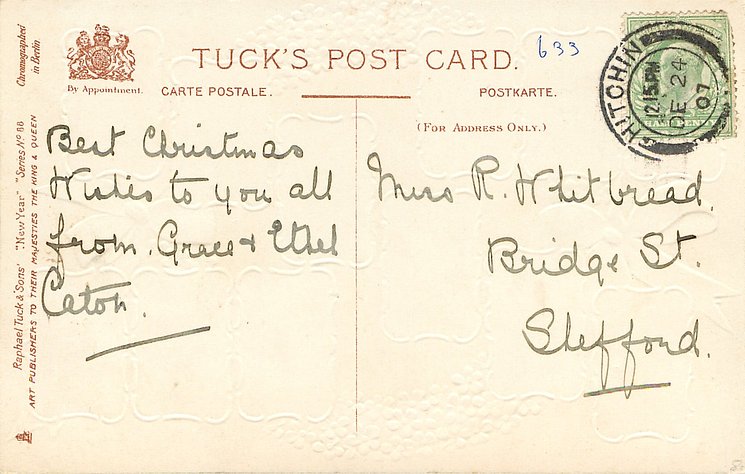 TUCK'S POST CARD.
633
By Appointment.
CARTE POSTALE.
POSTKARTE.
(FOR ADDRESS ONLY.)
HITCHIN
12.15 PM
DE 24
07
HALF PENNY
Best Christmas
Wishes to you all
from. Grace & Ethel
Caton.
Miss R. Whitbread.
Bridge St.
Shefford.
Chromographed
in Berlin
Raphael Tuck & Sons' "New Year" "Series No 86
ART PUBLISHERS TO THEIR MAJESTIES THE KING & QUEEN